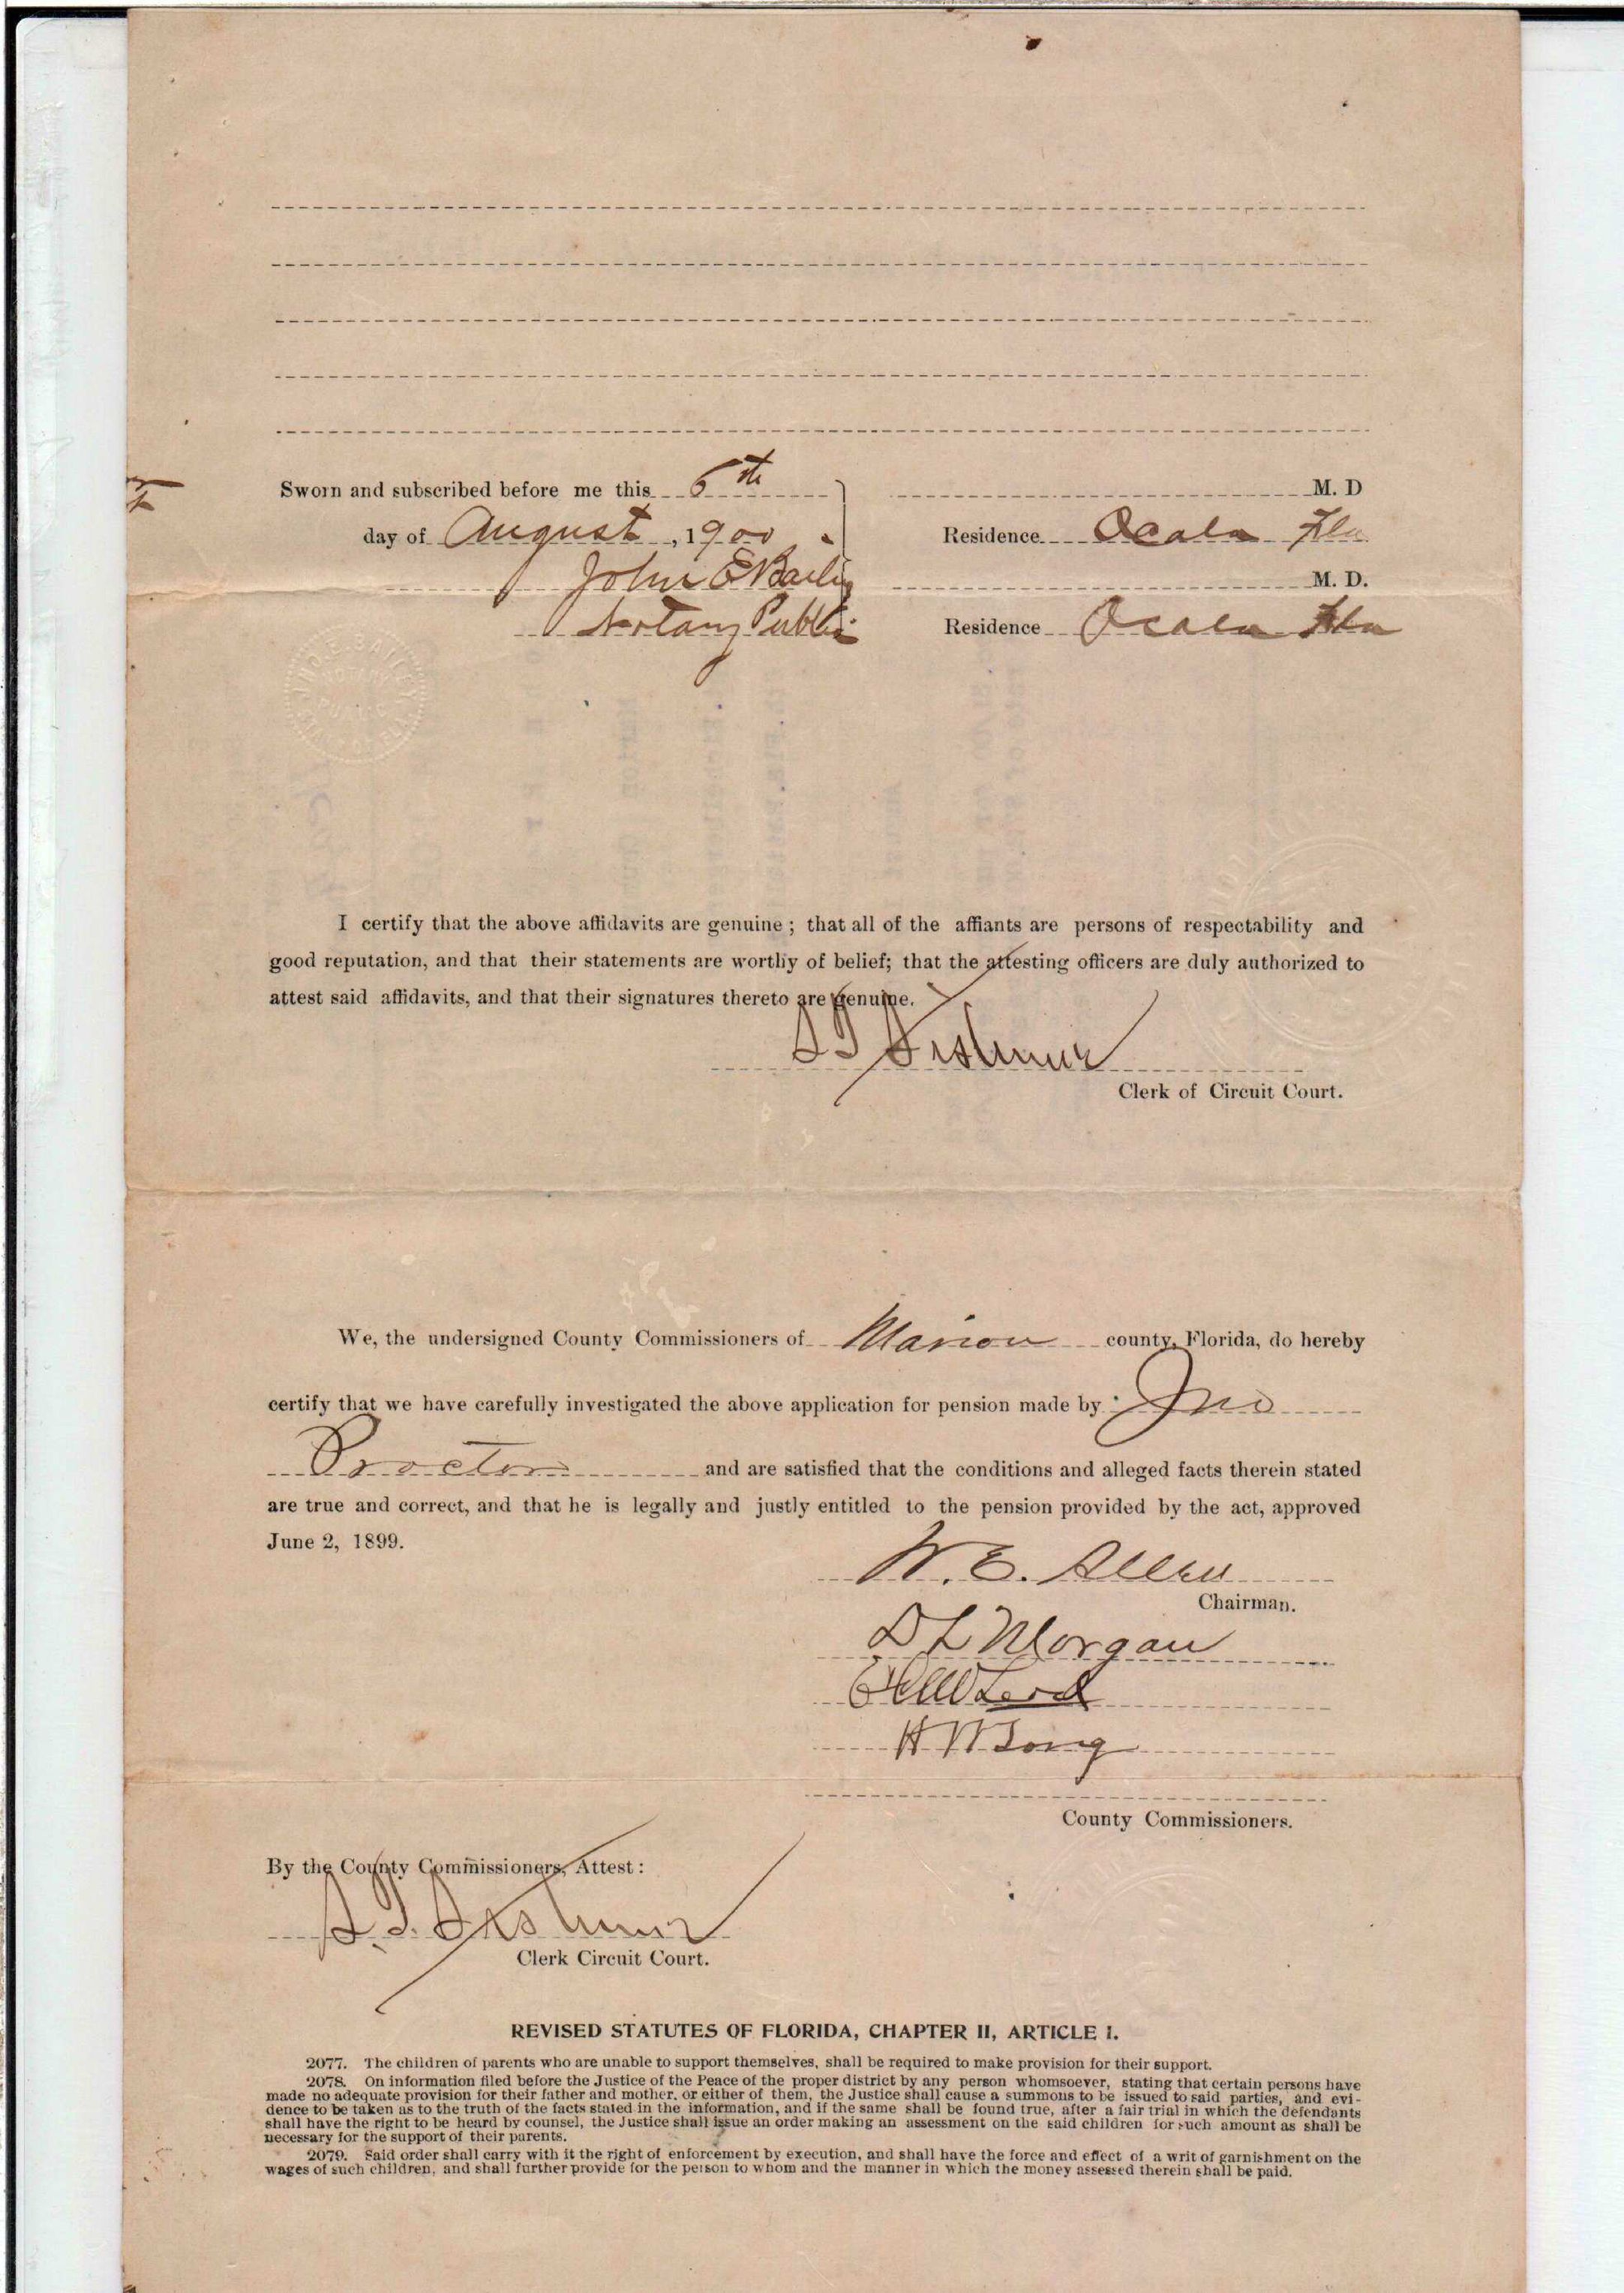 Sworn and subscribed before me this 6th
day of August, 1900
John E Bailey
Notary Public
M. D
Residence Ocala Fla
M. D.
Residence Ocala Fla
JNO. E. BAILEY
NOTARY
PUBLIC
I certify that the above affidavits are genuine; that all of the affiants are persons of respectability and
good reputation, and that their statements are worthy of belief; that the attesting officers are duly authorized to
attest said affidavits, and that their signatures thereto are genuine.
Clerk of Circuit Court.
We, the undersigned County Commissioners of Marion county, Florida, do hereby
certify that we have carefully investigated the above application for pension made by Jno
Proctor and are satisfied that the conditions and alleged facts therein stated
are true and correct, and that he is legally and justly entitled to the pension provided by the act, approved
June 2, 1899.
W. E. Allen
Chairman.
D L Morgan
H W Long
County Commissioners.
By the County Commissioners, Attest:
Clerk Circuit Court.
REVISED STATUTES OF FLORIDA, CHAPTER II, ARTICLE I.
2077. The children of parents who are unable to support themselves, shall be required to make provision for their support.
2078. On information filed before the Justice of the Peace of the proper district by any person whomsoever, stating that certain persons have
made no adequate provision for their father and mother, or either of them, the Justice shall cause a summons to be issued to said parties, and evi-
dence to be taken as to the truth of the facts stated in the information, and if the same shall be found true, after a fair trial in which the defendants
shall have the right to be heard by counsel, the Justice shall issue an order making an assessment on the said children for such amount as shall be
necessary for the support of their parents.
2079. Said order shall carry with it the right of enforcement by execution, and shall have the force and effect of a writ of garnishment on the
wages of such children, and shall further provide for the person to whom and the manner in which the money assessed therein shall be paid.